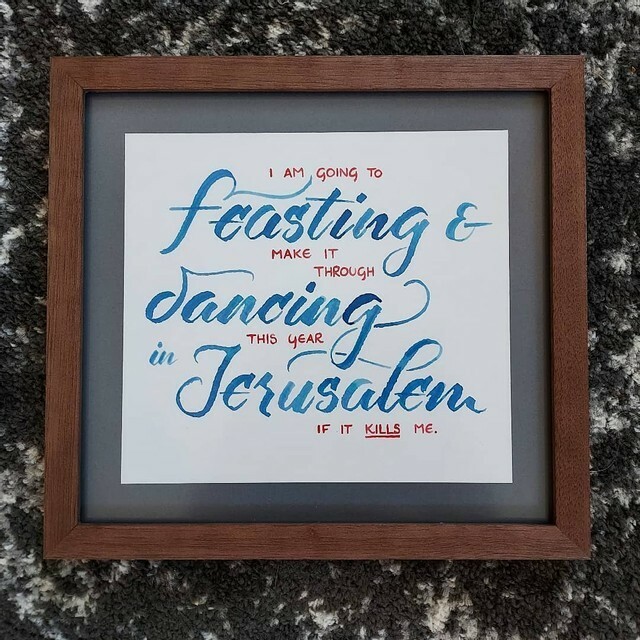 I AM GOING TO
feasting &
MAKE IT
THROUGH
dancing
THIS YEAR
in Jerusalem
IF IT KILLS ME.